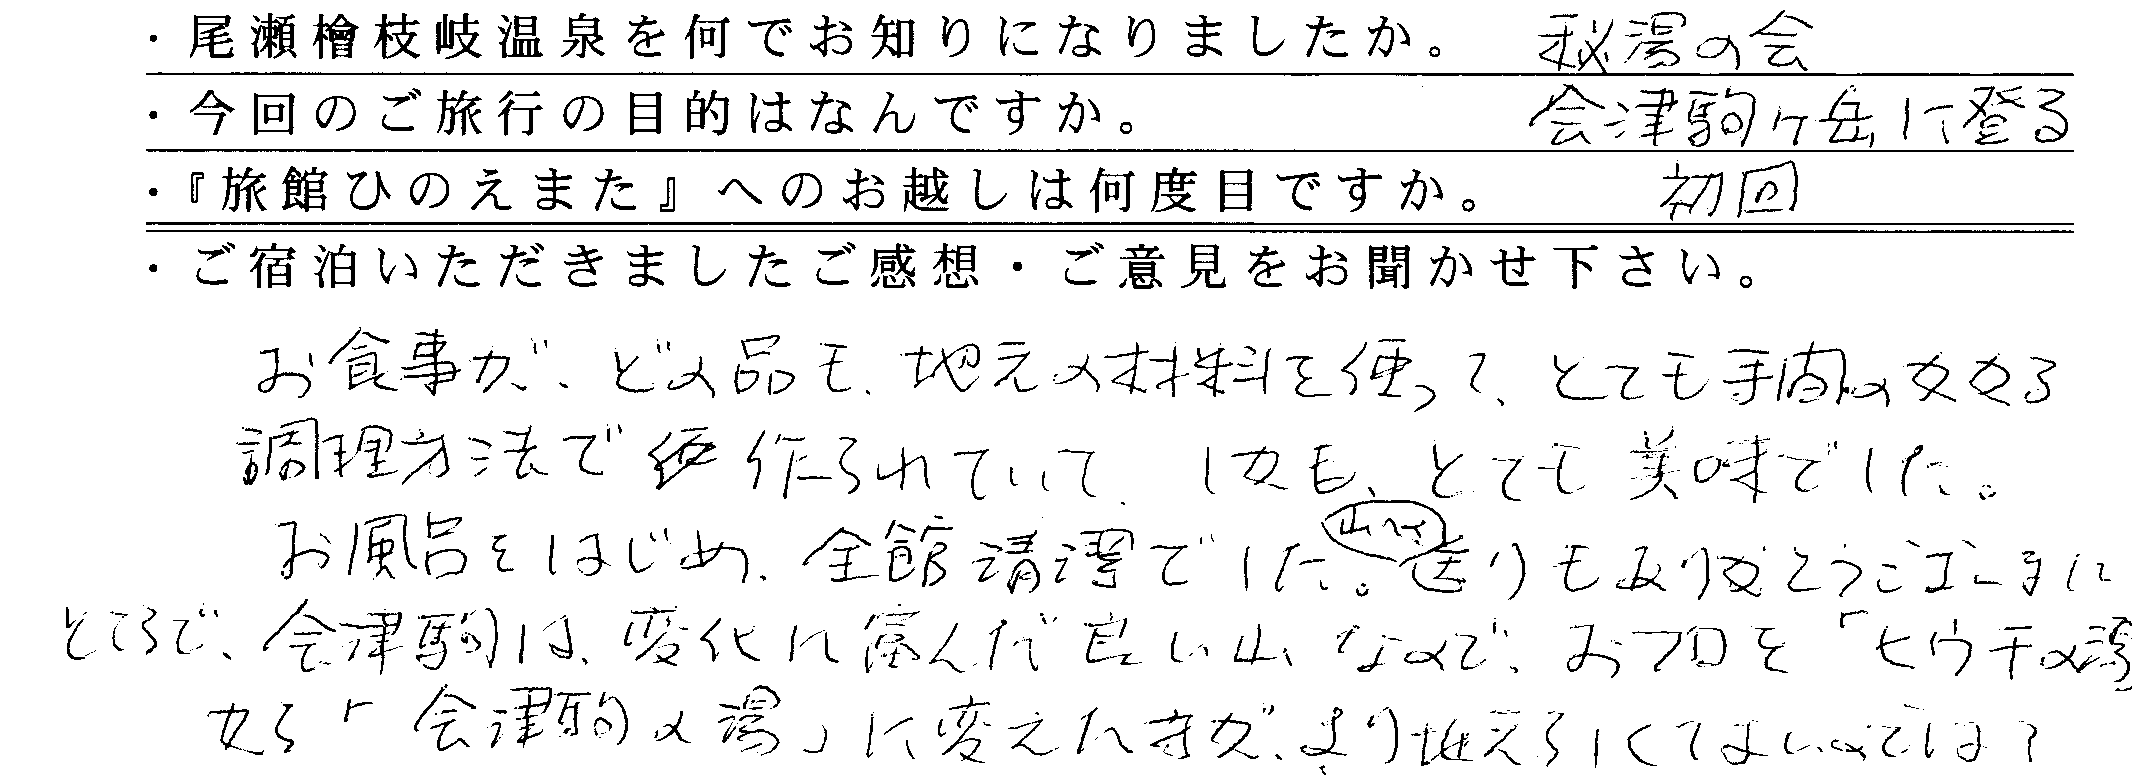 ・尾瀬檜枝岐温泉を何でお知りになりましたか。 秘湯の会
・今回のご旅行の目的はなんですか。 会津駒ヶ岳に登る
・『旅館ひのえまた』へのお越しは何度目ですか。 初回
・ご宿泊いただきましたご感想・ご意見をお聞かせ下さい。
お食事が、どの品も、地元の材料を使って、とても手間のかかる
調理方法で作られていて、しかも、とても美味でした。
お風呂をはじめ、全館清潔でした。山への送りもありがとうございました
ところで、会津駒は、変化に富んだ良い山なので、おフロを「ヒウチの湯
から「会津駒の湯」に変えた方が、より地元らしくてよいのでは?